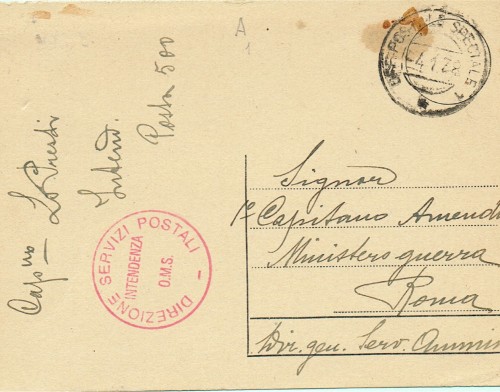 A
1
UFF. POSTALE SPECIALE
4.1.38
1
Cap.no Lo Presti
Intend.
Posta 500
DIREZIONE SERVIZI POSTALI
INTENDENZA
O.M.S.
Signor
1° Capitano Amend
Ministero guerra
Roma
Dir. gen. Serv. Ammin